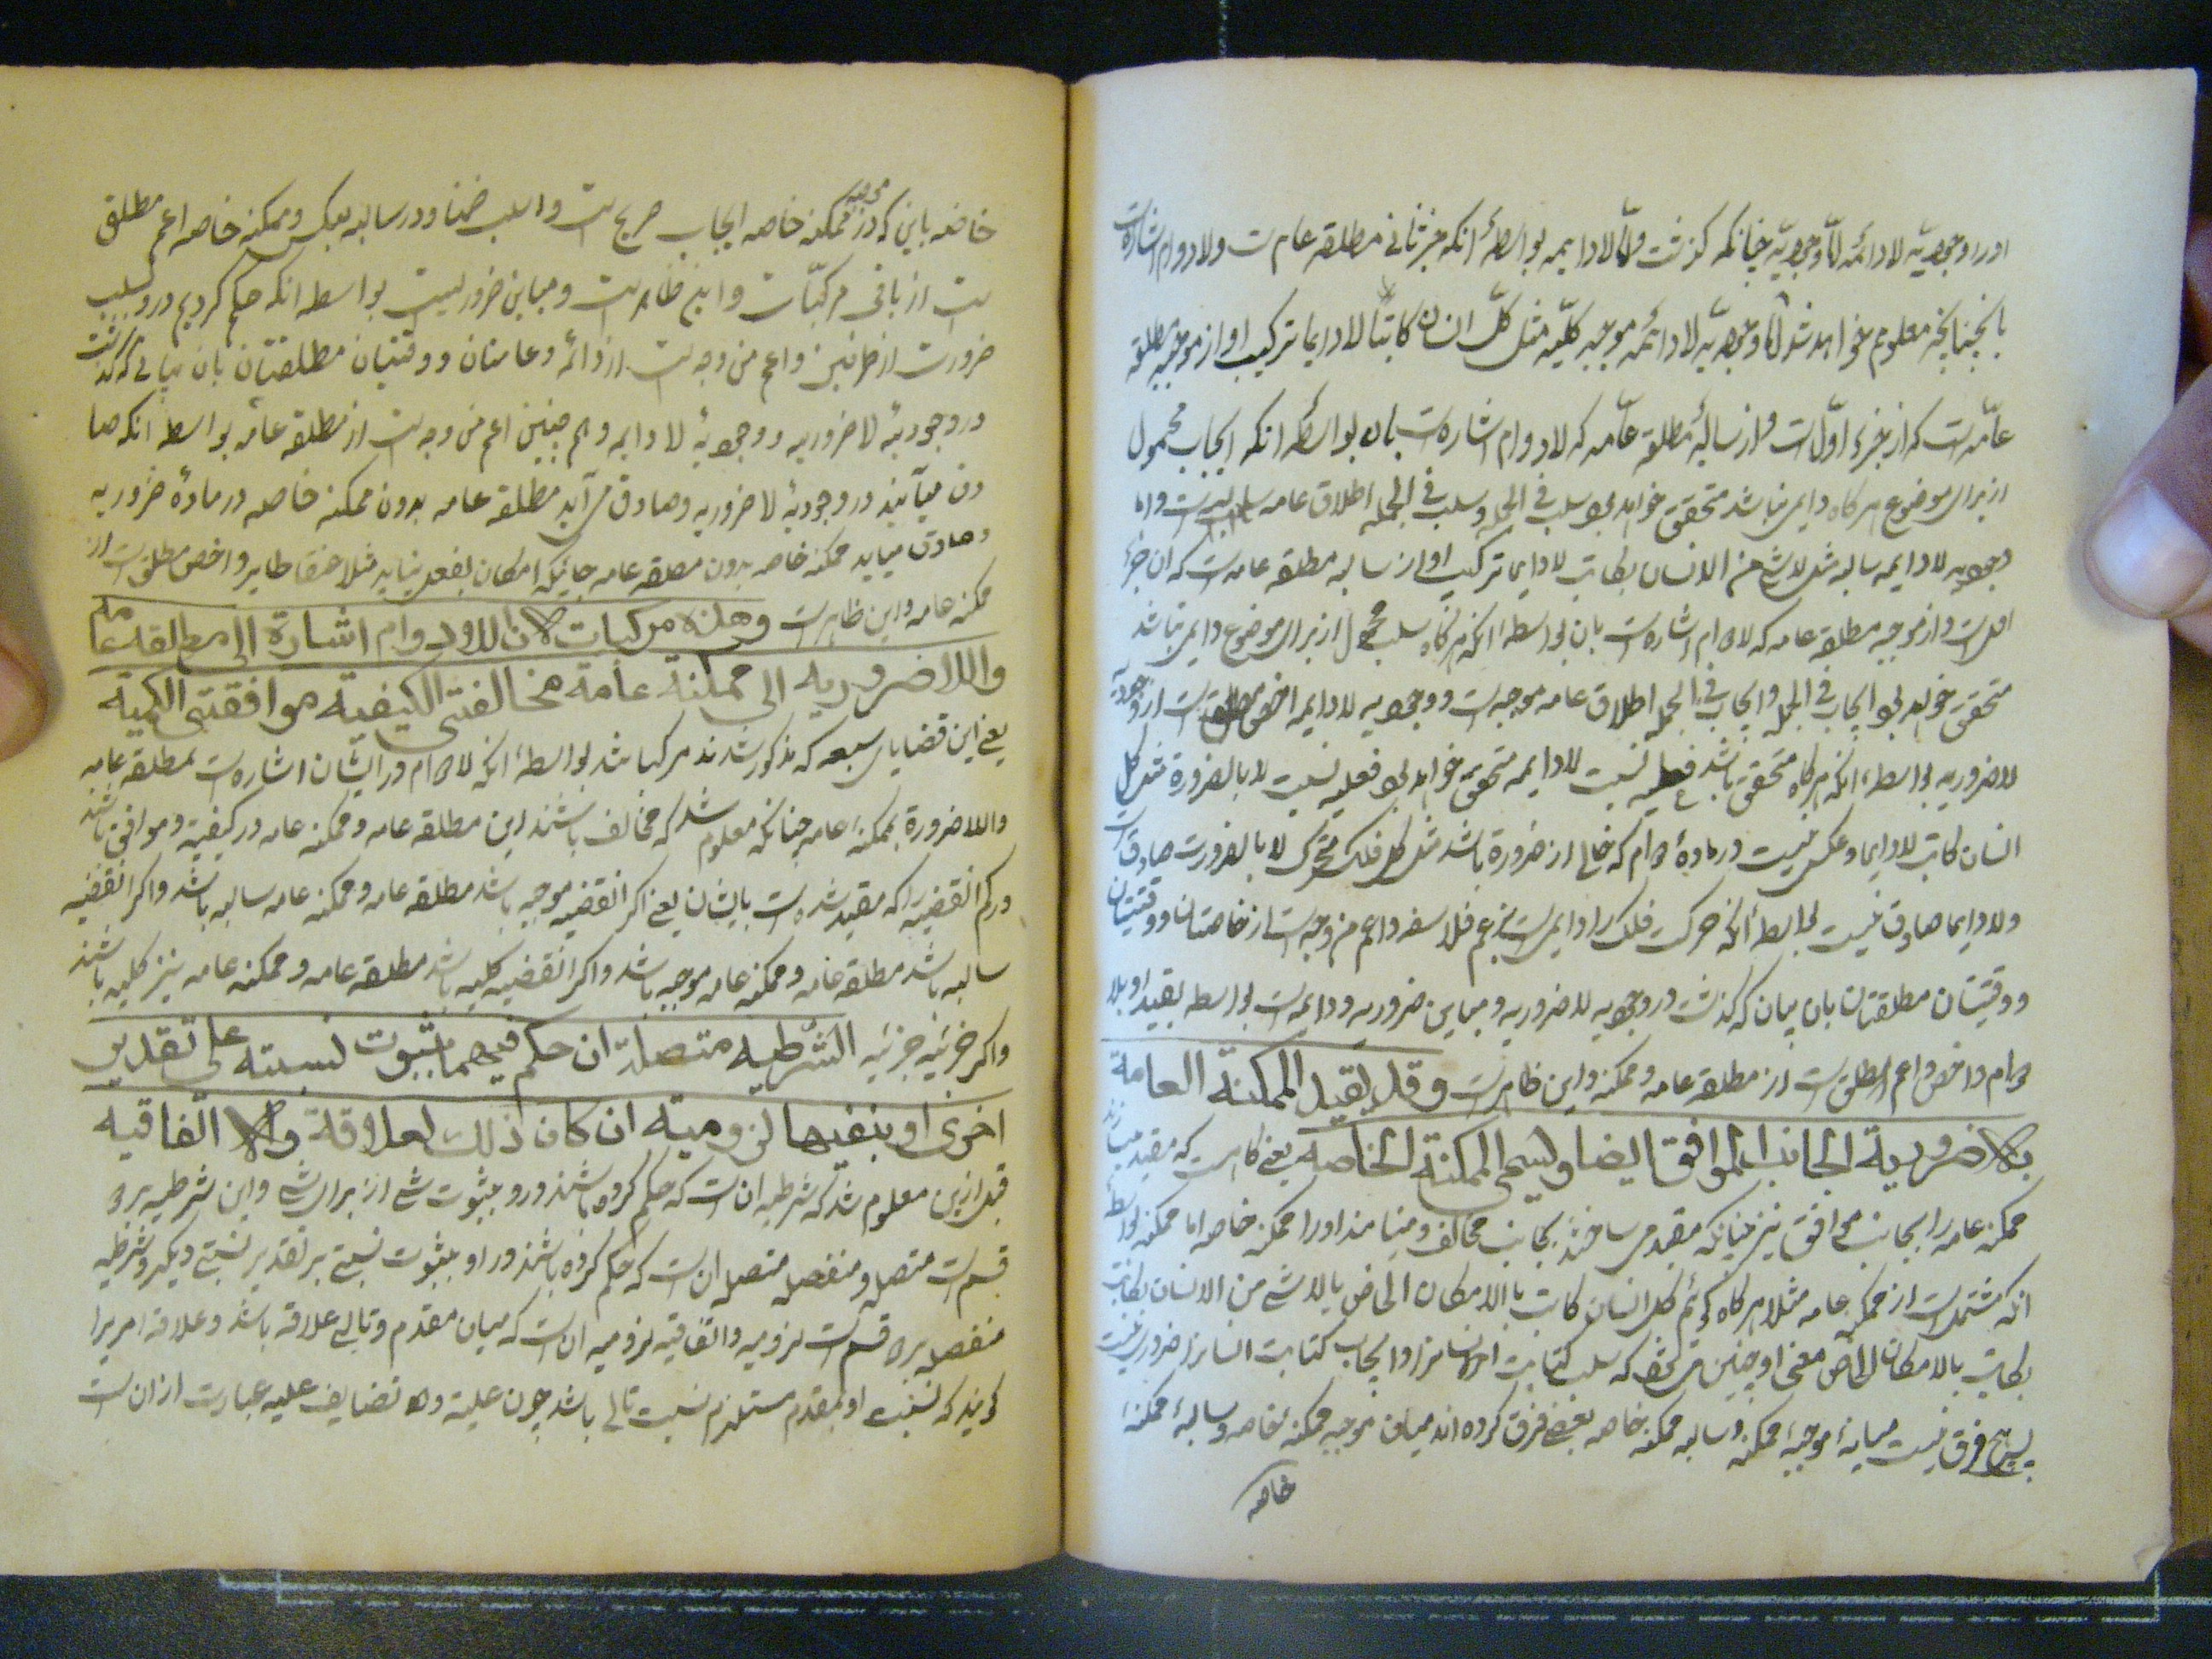 اورا وجودیّه لادائمه امّا وجودیّه چنانکه گذشت و امّا لادایمه بواسطهٔ انکه جزء ثانی مطلقه عام ست ولادوام اشارتست
بانچنانچه معلوم خواهد شد امّا وجودیّه لادائمه موجبه کلّیه مثل کلّ انسان کاتبا لادایما ترکیب او از موجبه مطلقه
عامّه است که از جزء اوّلست و از سالبهٔ مطلقه عامّه که لادوام اشاره است بان بواسطهٔ انکه ایجاب محمول
از برای موضوع هرگاه دایمی نباشد متحقق خواهد بود سلب فی الجمله و سلب فی الجمله اطلاق عامه سالبه است واما
وجودیه لادایمه سالبه مثل لاشئ من الانسان بکاتب لادایما ترکیب او از سالبه مطلقه عامه است که ان جزء
اولست و از موجبه مطلقه عامه که لادوام اشاره است بان بواسطهٔ انکه هرگاه سلب محمول از برای موضوع دایمی نباشد
متحقق خواهد بود ایجاب فی الجمله و ایجاب فی الجمله اطلاق عامه موجبه است و وجودیه لادایمه اخص مطلق است از وجودیه
لاضروریه بواسطهٔ انکه هرگاه متحقق باشد فعلیه نسبت لادایمه متحقق خواهد بود فعلیه نسبت لا بالضرورة مثل کل
انسان کاتب لادایما و عکس نیست در مادهٔ دوام که خالی از ضرورة باشد مثل کل فلک متحرک لا بالضرورت صادقست
ولادایما صادق نیست بواسطهٔ انکه حرکت فلک را دایمی است بزعم فلاسفه و اعم من وجه است از خاصتان و وقتیتان
و وقتیتان مطلقتان بان بیان که گذشت در وجودیه لاضروریه و مباین ضروریه و دایمه است بواسطه تقیید او بلا
دوام و اخص و اعم مطلق است از مطلقه عامه و ممکنه و این ظاهر است وقد یقید الممکنة العامة
بلاضروریة الجانب الموافق ایضا ویسمی الممکنة الخاصه یعنی گاه است که مقید میسازند
ممکنه عامه را بجانب موافق نیز چنانکه مقید می ساختند بجانب مخالف و مینامند اورا ممکنه خاصه اما ممکنه بواسطهٔ
انکه مشتملست از ممکنه عامه مثلا هرگاه گوئیم کل انسان کاتب بالامکان الخاص یا لاشئ من الانسان بکاتب
بکاتب بالامکان الخاص معنی او چنین میشود که سلب کتابت از انسان و ایجاب کتابت انسانرا ضروری نیست
هیچ فرق نیست میانهٔ موجبهٔ ممکنه و سالبه ممکنه خاصه بعضی فرق کرده اند میان موجبه ممکنهٔ خاصه و سالبهٔ ممکنهٔ
خاصه
خاصه باین که در موجبه ممکنه خاصه ایجاب صریح است و سلب ضمنا و در سالبه بعکس و ممکنه خاصه اعم مطلق
است از باقی مرکبّات و این ظاهر است و مباین ضروریست بواسطه انکه حکم کردیم در او بسلب
ضرورت از طرفین و اعم من وجه است از دائمه و عامتان و وقتیتان مطلقتان بان بیانی که گذشت
در وجودیهٔ لاضروریه و وجودیهٔ لادایمه و هم چنین اعم من وجه است از مطلقه عامه بواسطه انکه صا
دق میآیند در وجودیهٔ لاضروریه و صادق می آید مطلقه عامه بدون ممکنه خاصه در مادهٔ ضروریه
و صادق میاید ممکنه خاصه بدون مطلقه عامه جائیکه امکان بفعل نیاید مثلا عنقا طایر و اخص مطلق است از
ممکنه عامه و این ظاهر است وهذه مرکبات لان اللادوام اشارة الی مطلقه عامه
واللاضروریه الی ممکنة عامة مخالفتی الکیفیة موافقتی الکمیة
یعنی این قضایای سبعه که مذکور شدند مرکبا شد بواسطهٔ انکه لادوام در ایشان اشاره است بمطلقه عامه
واللاضرورة بممکنهٔ عامه چنانکه معلوم شد که مخالف باشند این مطلقه عامه و ممکنه عامه در کیفیة و موافق باشند
در کم انقضیه را که مقید شده است بایشان یعنی اگر انقضیه موجبه باشد مطلقه عامه و ممکنه عامه سالبه باشد و اگر انقضیه
سالبه باشد مطلقه عامه و ممکنه عامه موجبه باشد و اگر انقضیه کلیه باشد مطلقه عامه و ممکنه عامه نیز کلیه باشند
و اگر جزئیه جزئیه الشرطیه متصلة ان حکم فیهما بثبوت نسبته علی تقدیر
اخری او بنفیها لزومیة ان کان ذلک لعلاقة والا اتفاقیه
قبل ازین معلوم شد که شرطیه انست که حکم کرده باشند در او بثبوت شئ از برای شئ و این شرطیه بر دو
قسم است متصل و منفصل متصله انست که حکم کرده باشند در او بثبوت نسبتی بر تقدیر نسبتی دیگر و شرطیه
منفصل بر دو قسم است لزومیه و اتفاقیه لزومیه انست که میان مقدم و تالی علاقه باشد و علاقه امریرا
گویند که نسبت او بمقدم مستلزم نسبت تالی باشد چون علیة و تضایف علیه عبارت از انست